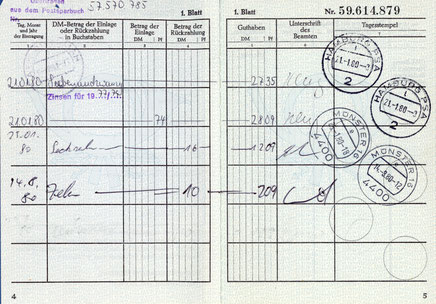 aus dem Postsparbuch
Nr.
57 570 785
1. Blatt
1. Blatt
Nr. 59.614.879
Tag, Monat und Jahr der Eintragung
DM-Betrag der Einlage oder Rückzahlung – in Buchstaben
Betrag der Einlage
DM Pf
Betrag der Rückzahlung
DM Pf
Guthaben
DM Pf
Unterschrift des Beamten
Tagesstempel
21.01.80
27 35
HAMBURG PSA
21.-1.80
2
Zinsen für 19
21.01.80
74
28 09
HAMBURG PSA
21.-1.80
2
21.01.
80
Sechzehn
16
12 09
MÜNSTER 16
4400
14.8.
80
Zehn
10
2 09
MÜNSTER 16
4400
4
5